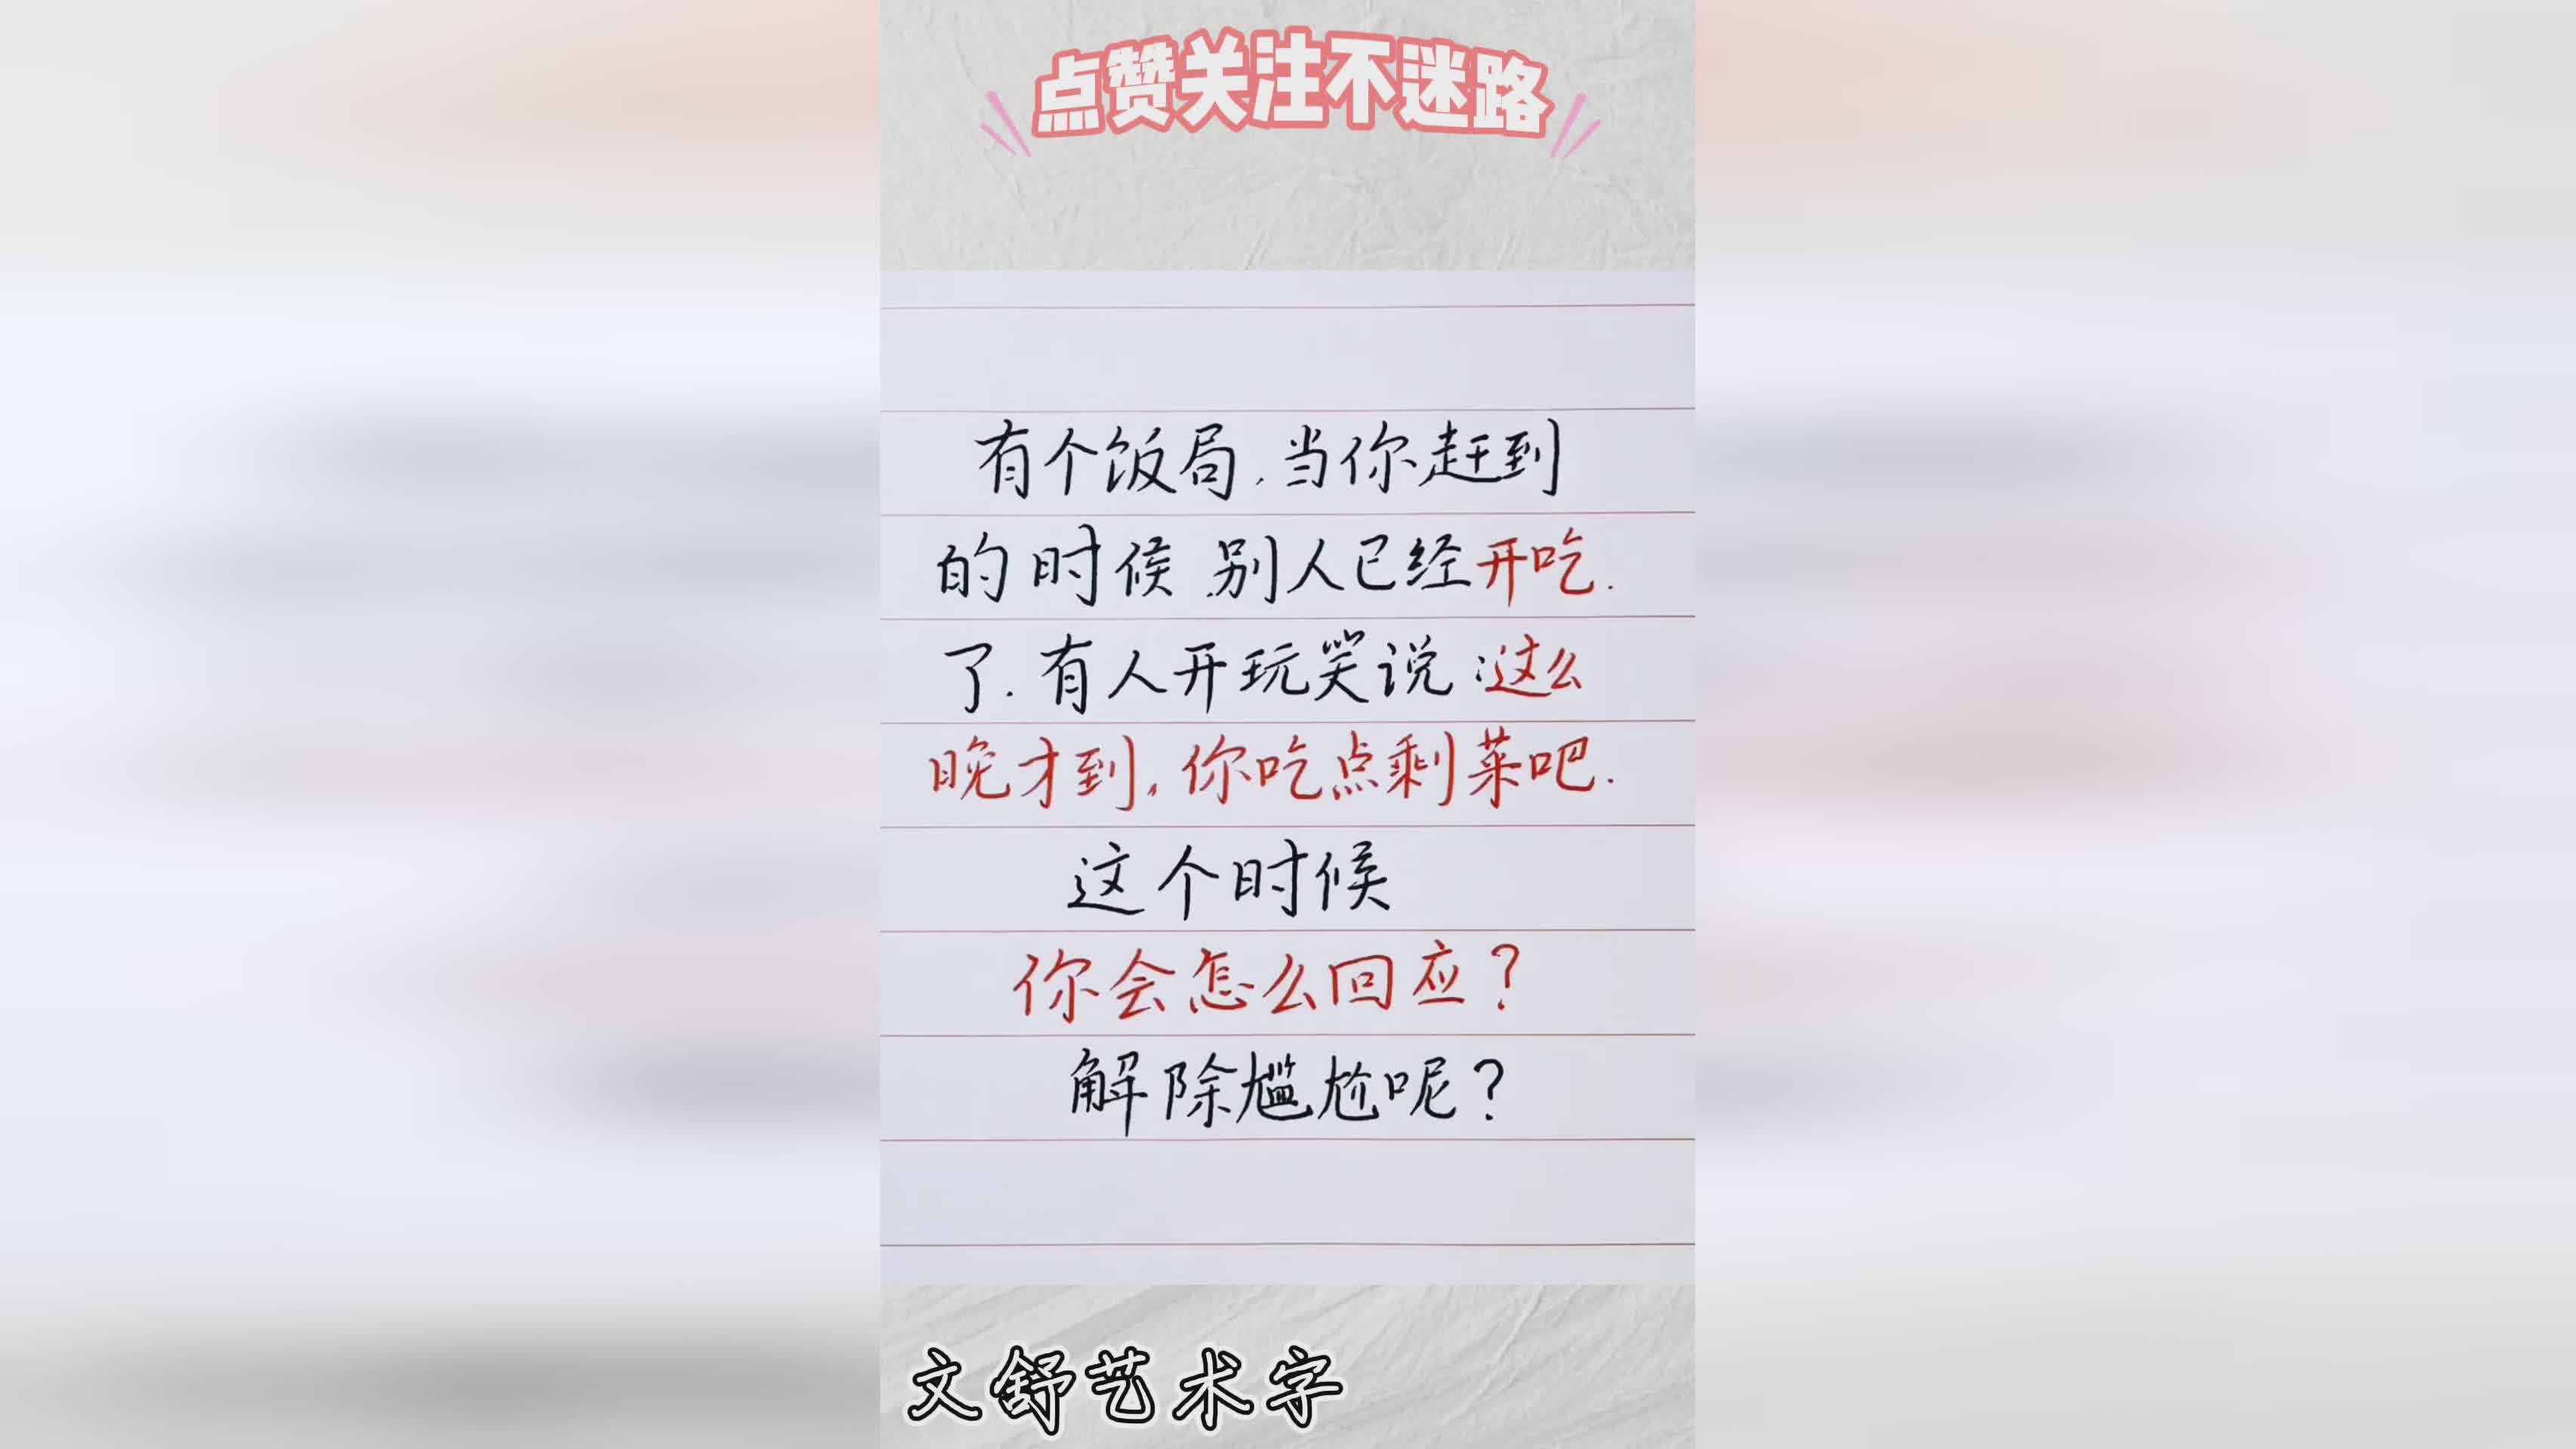 点赞关注不迷路
有个饭局.当你赶到
的时候.别人已经开吃.
了.有人开玩笑说:这么
晚才到,你吃点剩菜吧.
这个时候
你会怎么回应?
解除尴尬呢?
文舒艺术字